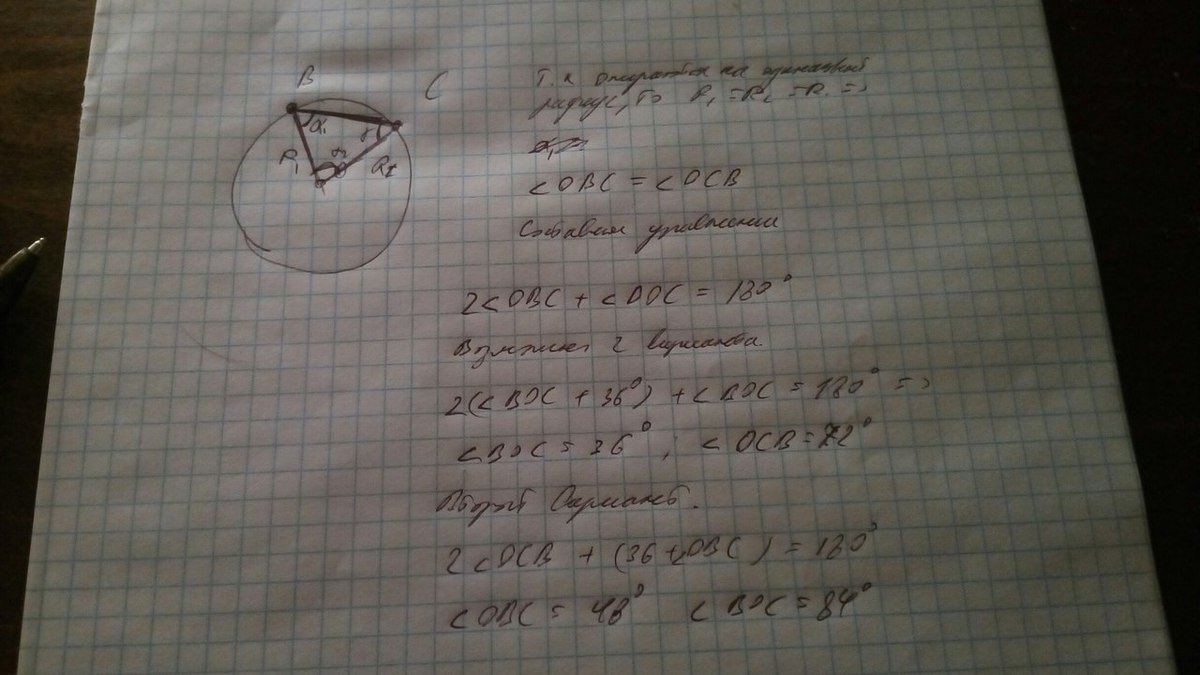 B
C
α₁
γ
R₁
R₂
Т.к опираются на одинаковый
радиус, то R₁ = R₂ = R. =>
∠OBC = ∠OCB
Составим уравнения
2∠OBC + ∠BOC = 180°
Возможны 2 варианта
2(∠BOC + 36°) + ∠BOC = 180° =>
∠BOC = 36° ; ∠OCB = 72°
Второй Вариант.
2∠OCB + (36 + ∠OBC) = 180°
∠OBC = 48° ∠BOC = 84°